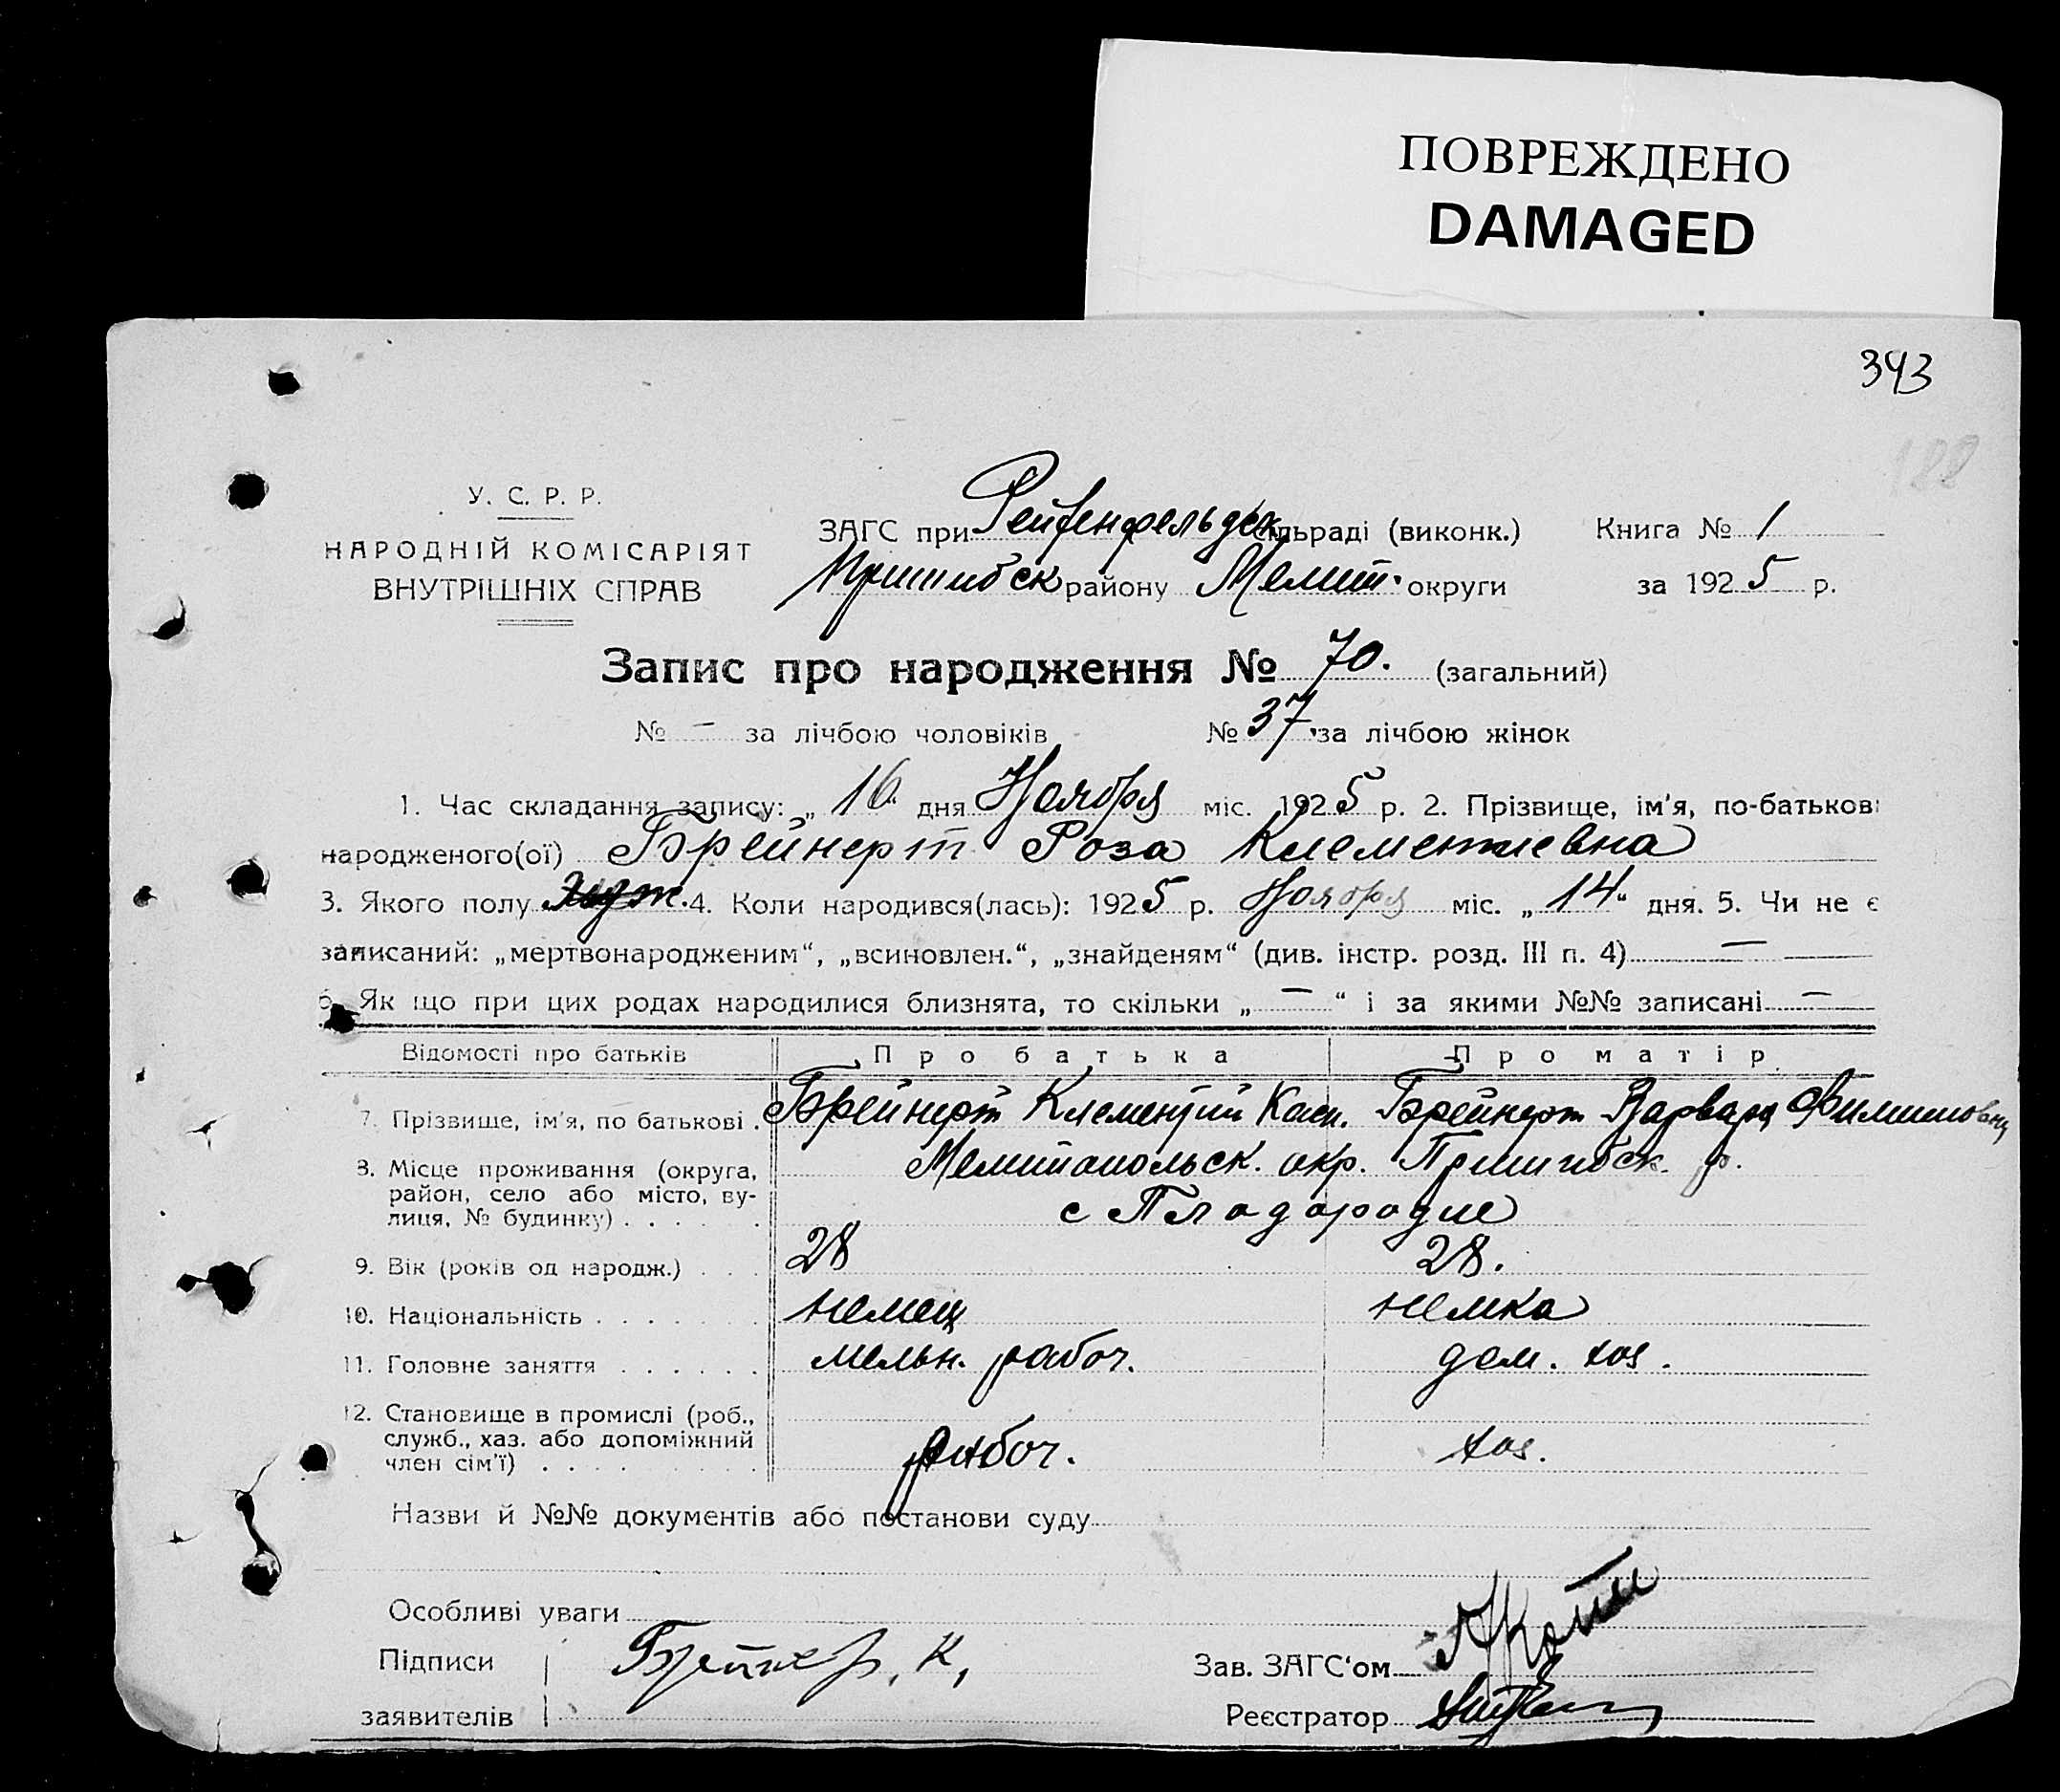 ПОВРЕЖДЕНО
DAMAGED
393
188
У. С. Р. Р.
НАРОДНІЙ КОМІСАРІЯТ
ВНУТРІШНІХ СПРАВ
ЗАГС при Рейхенфельдск ільраді (виконк.) Книга № 1
Пришибск району Мелит. округи за 1925 р.
Запис про народження № 70. (загальний)
№ — за лічбою чоловіків № 37 за лічбою жінок
1. Час складання запису: „ 16 “ дня Ноября міс. 1925 р. 2. Прізвище, ім'я, по-батькові
народженого(ої) Брейнерт Роза Клементиевна
3. Якого полу 4. Коли народився(лась): 1925 р. Ноября міс. „ 14 “ дня. 5. Чи не є
записаний: „мертвонародженим“, „всиновлен.“, „знайденям“ (див. інстр. розд. III п. 4) —
6. Як що при цих родах народилися близнята, то скільки „ — “ і за якими №№ записані —
Відомості про батьків Про батька Про матір
7. Прізвище, ім'я, по батькові . Брейнерт Клементий Касп. Брейнерт Варвара Филиповна
8. Місце проживання (округа, Мелитопольск. окр. Пришибск. р.
район, село або місто, ву-
лиця, № будинку) . . . . . с Плодородие
9. Вік (років од народж.) . . . 28 28.
10. Національність . . . . . . . немец немка
11. Головне заняття . . . . . . мельн. рабоч. дом. хоз.
12. Становище в промислі (роб.,
служб., хаз. або допоміжний рабоч. хоз.
член сім'ї) . . . . . .
Назви й №№ документів або постанови суду
Особливі уваги
Підписи Брейнер. К,
Зав. ЗАГС'ом
заявителів
Реєстратор